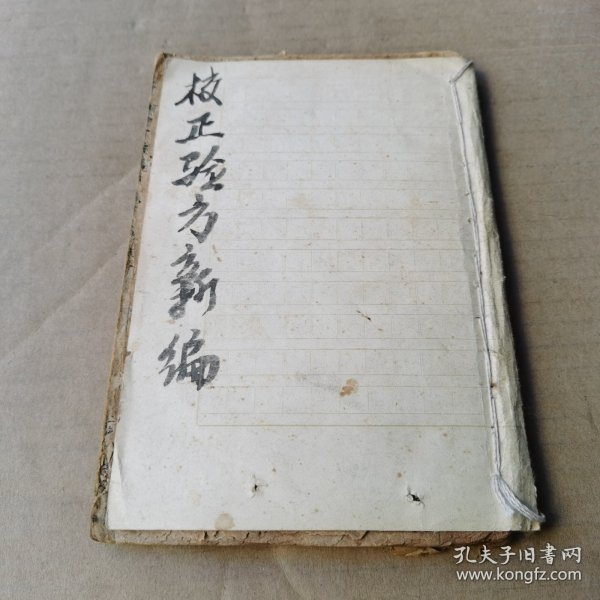 校正验方新编
孔夫子旧書网
www.kongfz.com